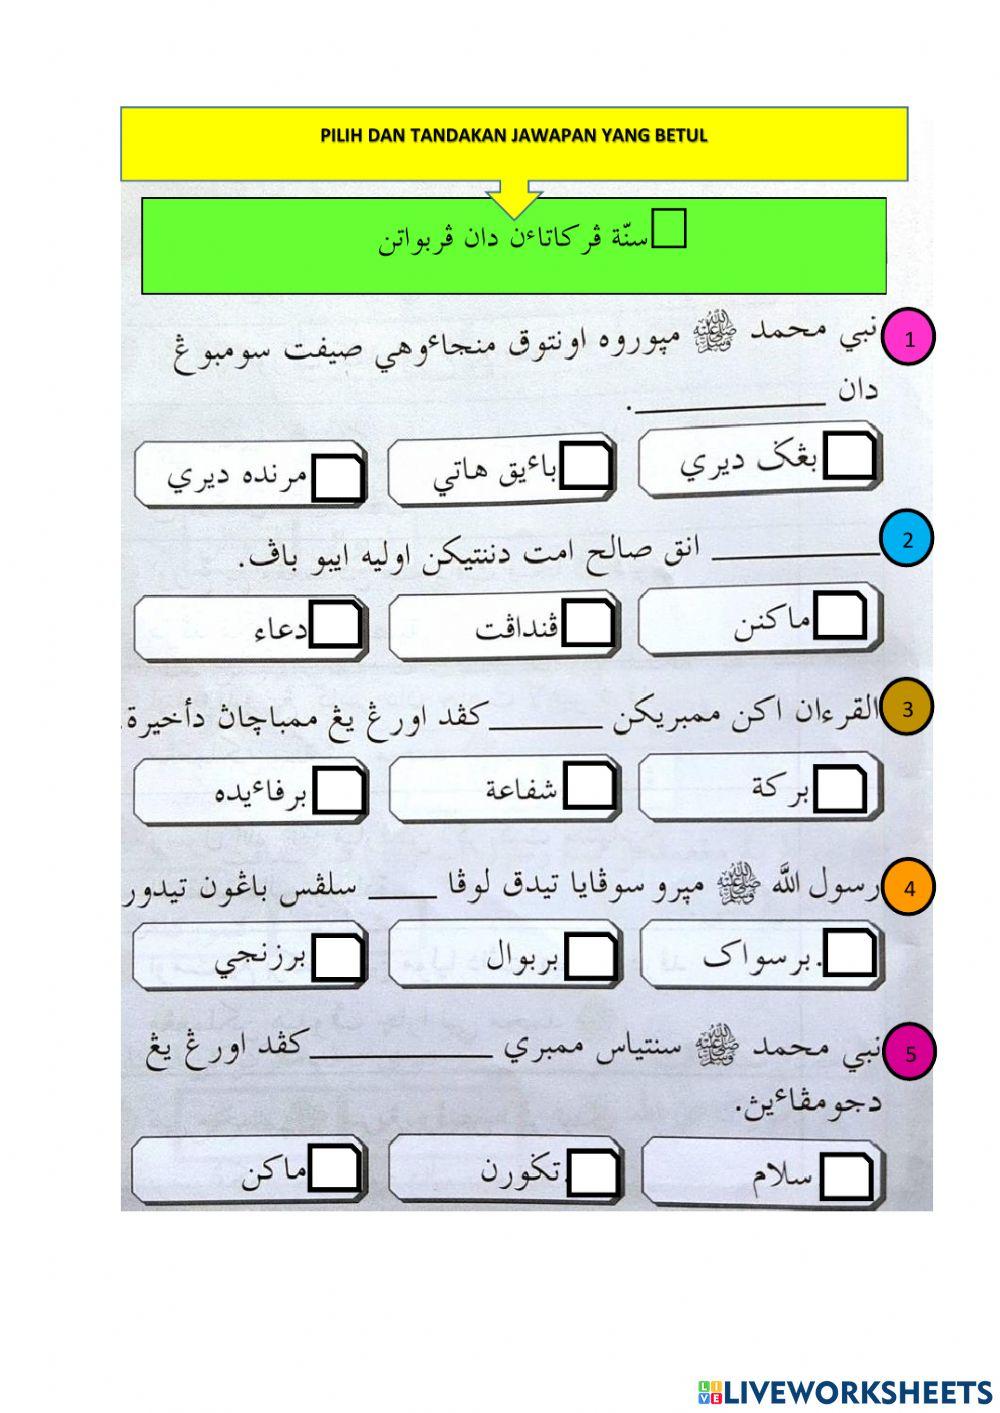 PILIH DAN TANDAKAN JAWAPAN YANG BETUL
سنّة ڤركاتاءن دان ڤربواتن
1
نبي محمد ﷺ مڽوروه اونتوق منجاءوهي صيفت سومبوڠ
دان ____________.
بڠݢ ديري
باءيق هاتي
مرنده ديري
2
____________ انق صالح امت دننتيکن اوليه ايبو باڤ.
ماکنن
ڤنداڤت
دعاء
3
القرءان اکن ممبريکن ________ کڤد اورڠ يڠ ممباچاڽ دأخيرة.
برکة
شفاعة
برفاءيده
4
رسول الله ﷺ مڽرو سوڤايا تيدق لوڤا ____ سلڤس باڠون تيدور
برسواک.
بربوال
برزنجي
5
نبي محمد ﷺ سنتياس ممبري ____________ کڤد اورڠ يڠ
دجومڤاءيڽ.
سلام
تݢورن
ماکن
LIVEWORKSHEETS